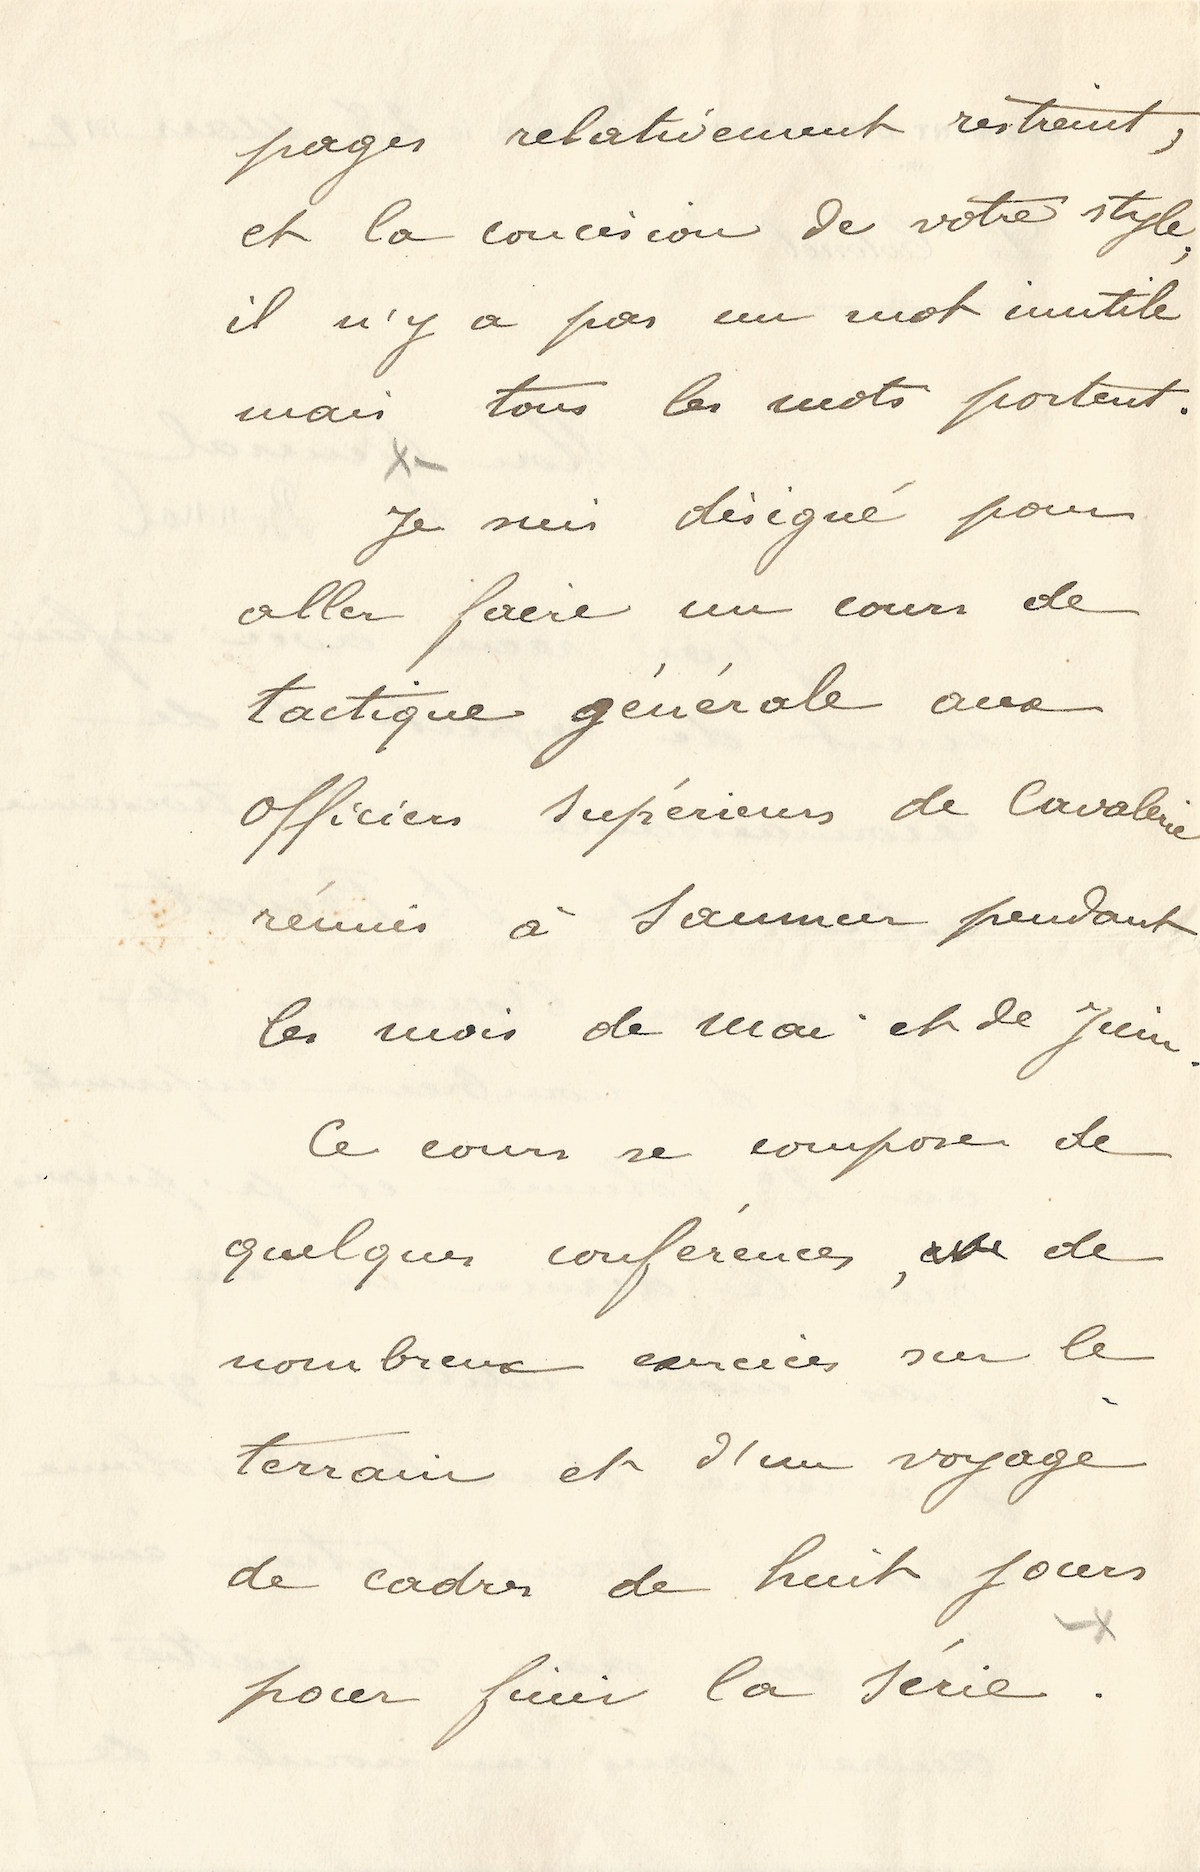 pages relativement restreint,
et la concision de votre style,
il n'y a pas un mot inutile
mais tous les mots portent.
Je suis désigné pour
aller faire un cours de
tactique générale aux
officiers supérieurs de Cavalerie
réunis à Saumur pendant
les mois de mai et de Juin.
Ce cours se compose de
quelques conférences, de
nombreux exercices sur le
terrain et d'un voyage
de cadres de huit jours
pour finir la série.